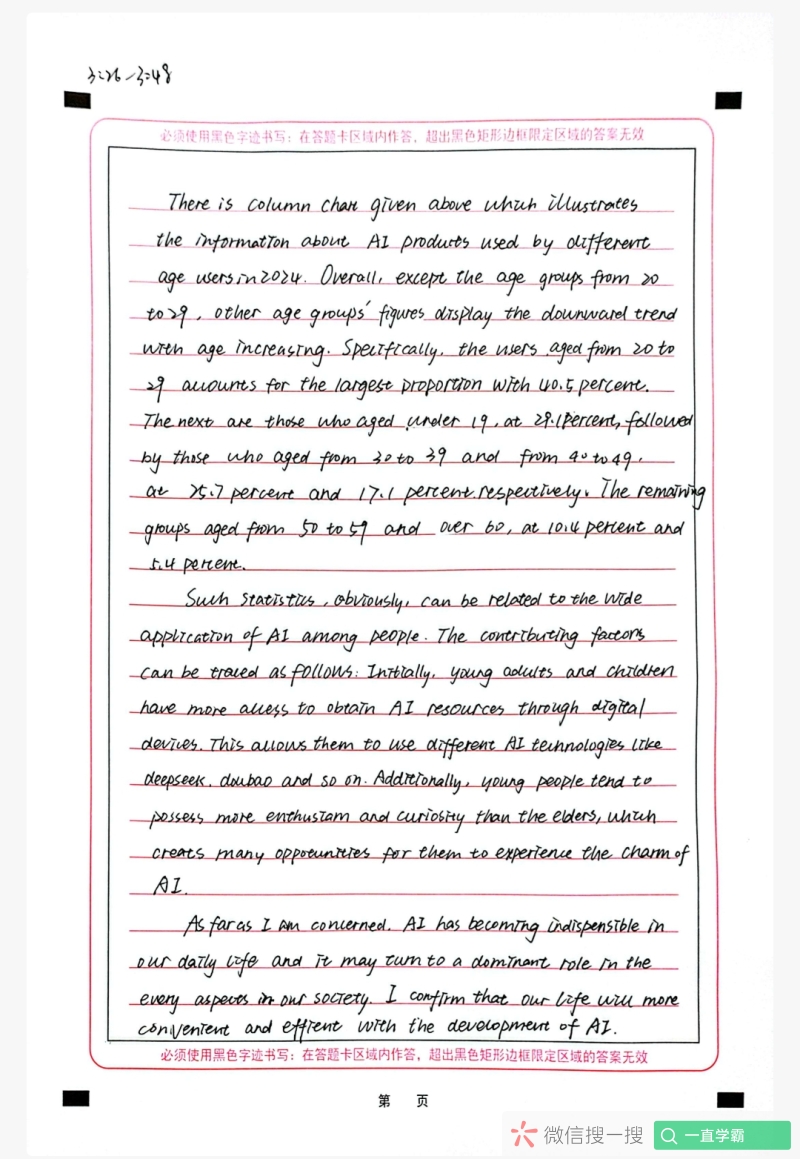 3:26-3:48
必须使用黑色字迹书写：在答题卡区域内作答，超出黑色矩形边框限定区域的答案无效
There is column chart given above which illustrates
the information about AI products used by different
age users in 2024. Overall, except the age groups from 20
to 29, other age groups' figures display the downward trend
with age increasing. Specifically, the users aged from 20 to
29 accounts for the largest proportion with 40.5 percent.
The next are those who aged under 19, at 29.1percent, followed
by those who aged from 30 to 39 and from 40 to 49,
at 25.7 percent and 17.1 percent respectively. The remaining
groups aged from 50 to 59 and over 60, at 10.4 percent and
5.4 percent.
Such statistics, obviously, can be related to the wide
application of AI among people. The contributing factors
can be traced as follows: Initially, young adults and children
have more access to obtain AI resources through digital
devices. This allows them to use different AI technologies like
deepseek, doubao and so on. Additionally, young people tend to
possess more enthusiam and curiosity than the elders, which
creats many oppotunities for them to experience the charm of
AI.
As far as I am concerned, AI has becoming indispensible in
our daily life and it may turn to a dominant role in the
every aspects in our society. I confirm that our life will more
convenient and effient with the development of AI.
必须使用黑色字迹书写：在答题卡区域内作答，超出黑色矩形边框限定区域的答案无效
第 页
微信搜一搜 一直学霸